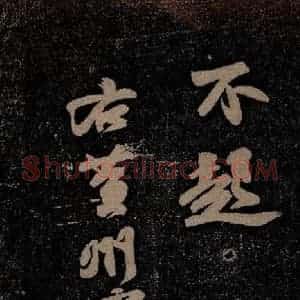 不起
右黃州
ShufaZiliao.COM